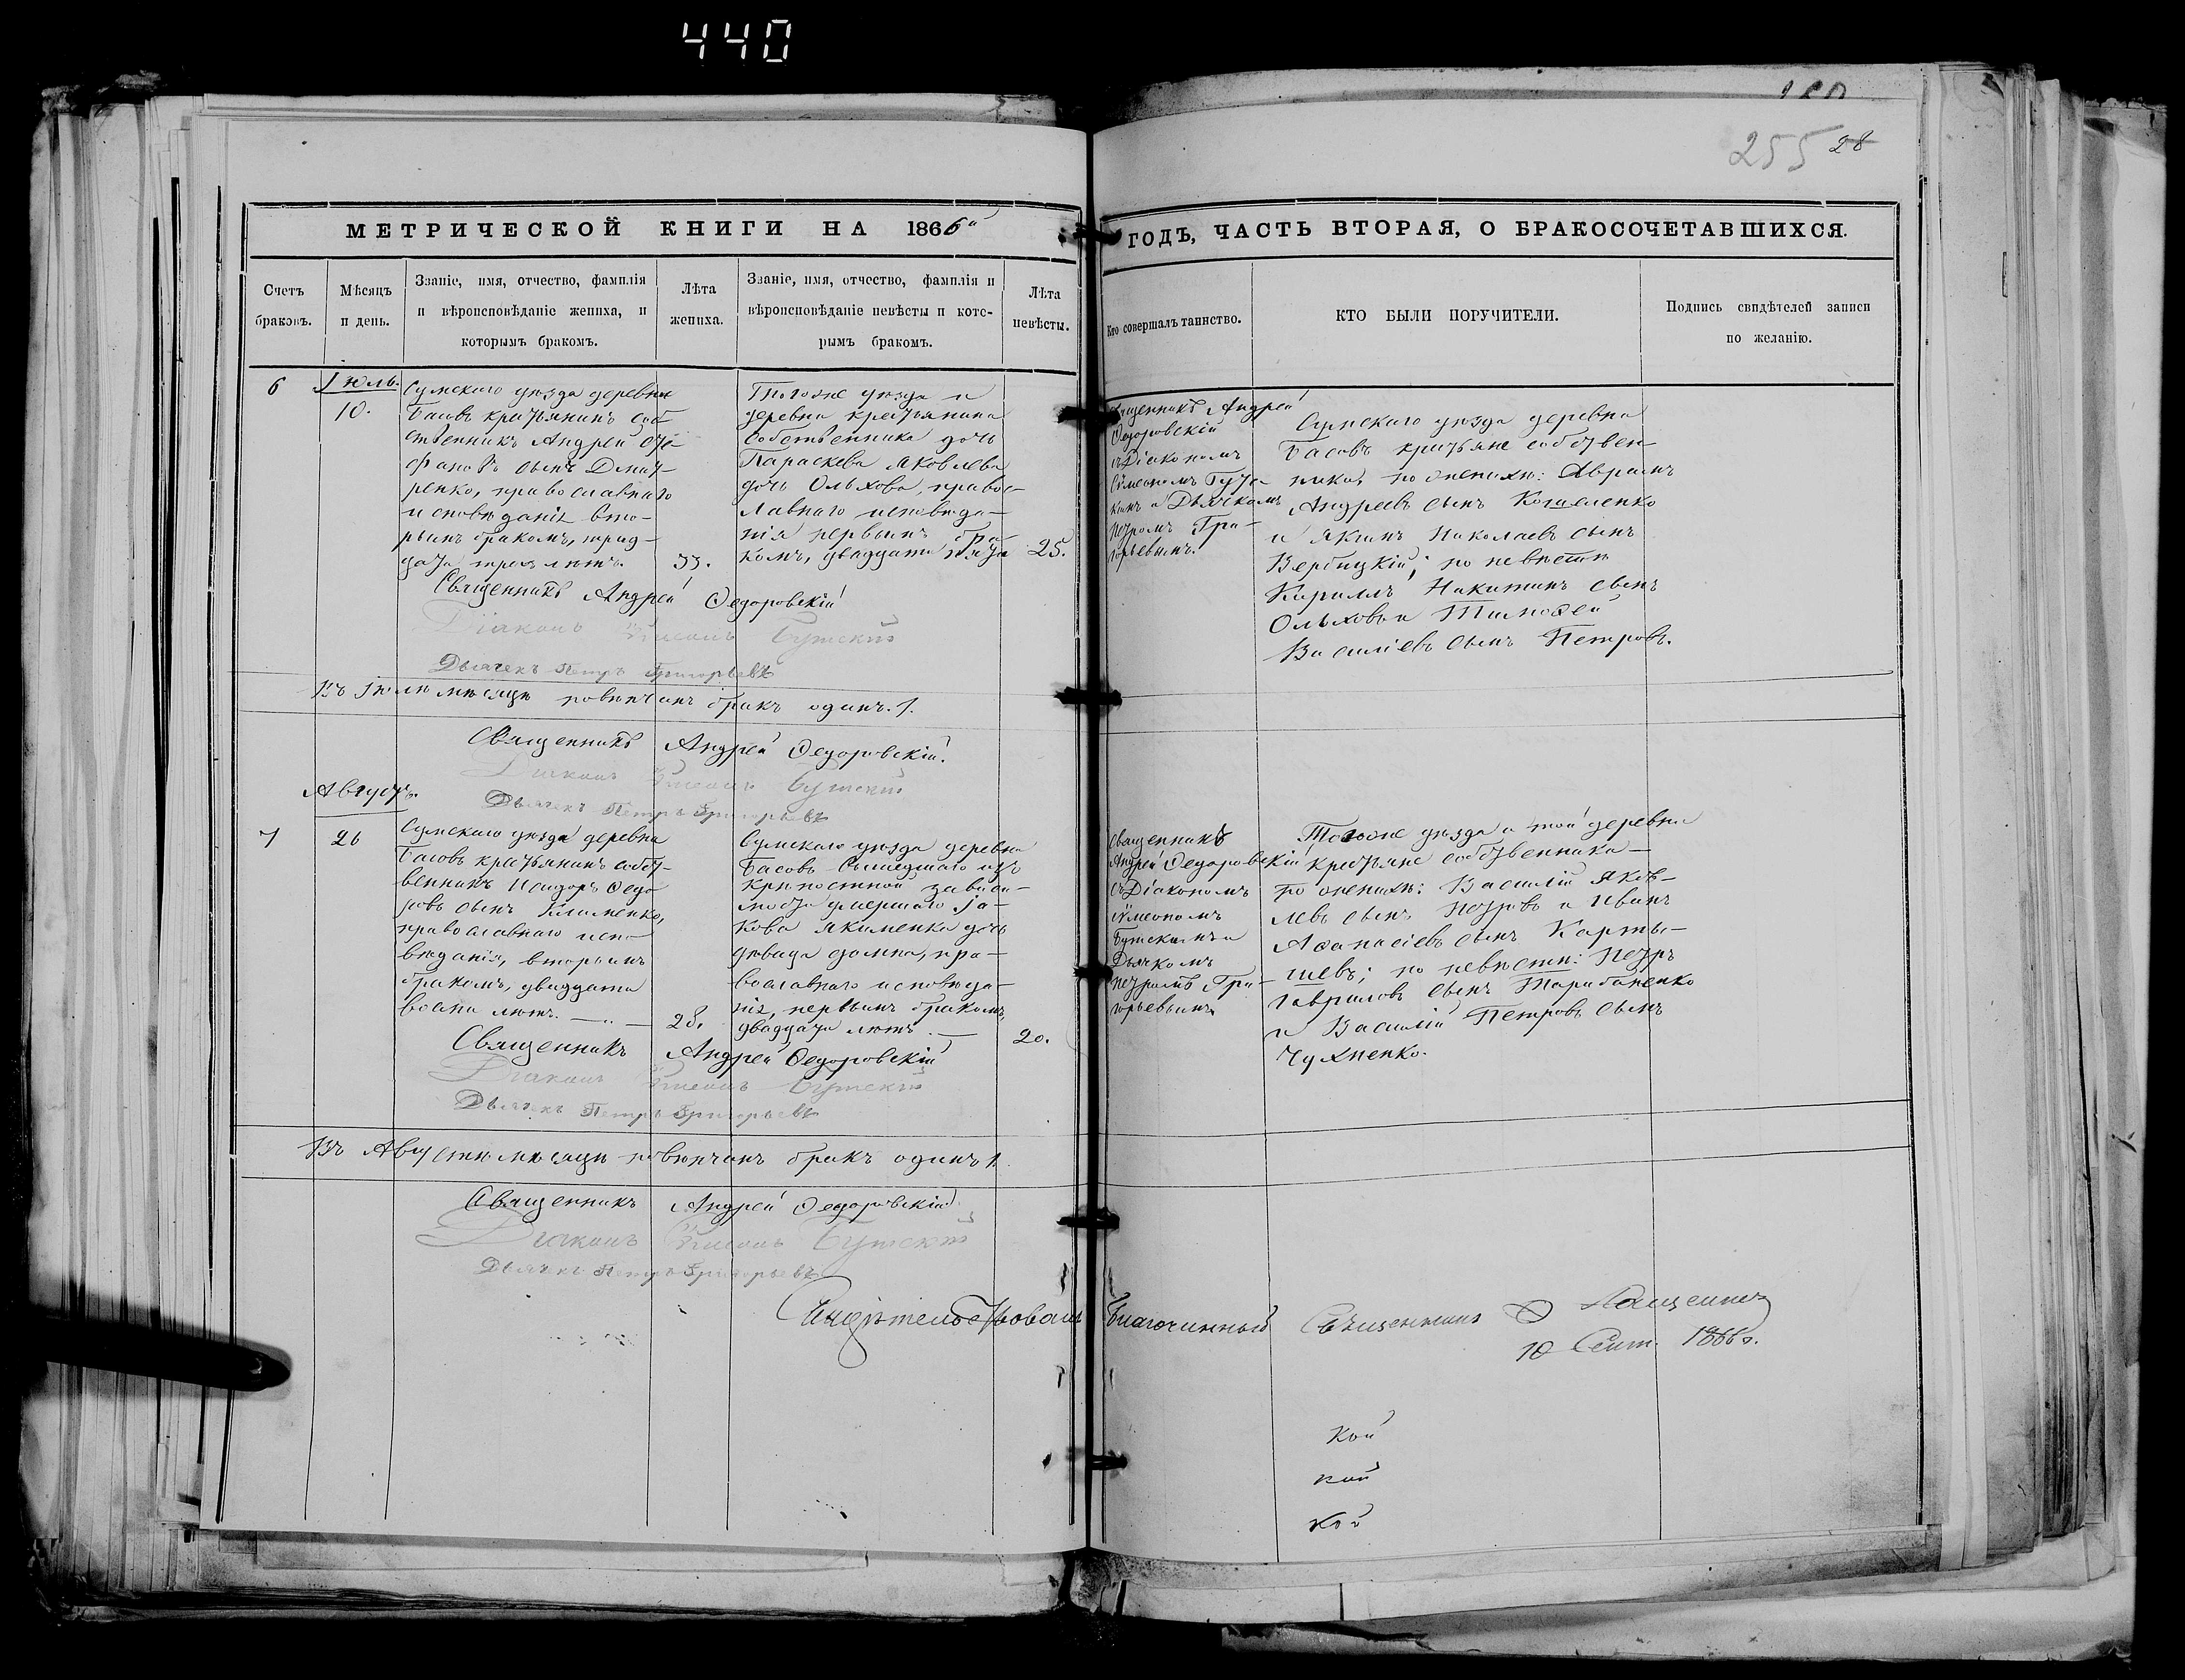 440
255 28
МЕТРИЧЕСКОЙ КНИГИ НА 1866й
ГОДЪ, ЧАСТЬ ВТОРАЯ, О БРАКОСОЧЕТАВШИХСЯ.
Счетъ
браковъ.
Мѣсяцъ
и день.
Званіе, имя, отчество, фамилія
и вѣроисповѣданіе жениха, и
которымъ бракомъ.
Лѣта
жениха.
Званіе, имя, отчество, фамилія и
вѣроисповѣданіе невѣсты и кото-
рымъ бракомъ.
Лѣта
невѣсты.
Кто совершалъ таинство.
КТО БЫЛИ ПОРУЧИТЕЛИ.
Подпись свидѣтелей записи
по желанію.
6
Іюль.
10.
Сумскаго уѣзда деревни
Басовъ крестьянинъ соб
ственникъ Андрей Сте
фановъ сынъ
ренко, православнаго
исповѣданія вто-
рымъ бракомъ, трид-
цати трехъ лѣтъ.
33.
Тогоже уѣзда и
деревни крестьянина
Собственника дочь
Параскева Яковлева
дочь Ольхова, правос-
лавнаго исповѣда-
нія первымъ бра-
комъ, двадцати пяти
25.
Священникъ Андрей
Ѳедоровскій
съ Діакономъ
Сѵмеономъ Бутс
кимъ и Дьячкомъ
Петромъ Гри-
горьевымъ.
Сумскаго уѣзда деревни
Басовъ крестьяне собствен-
ники, по женихѣ: Аврамъ
Андреевъ сынъ Кошеленко
и Якимъ Николаевъ сынъ
Вербицкій; по невѣстѣ
Кириллъ Никитинъ сынъ
Ольховъ и Тимоѳей
Василіевъ сынъ Петровъ.
Священникъ Андрей Ѳедоровскій
Діаконъ Сѵмеонъ Бутскій
Дьячекъ Петръ Григорьевъ
Въ Іюлѣ мѣсяцѣ повѣнчанъ бракъ одинъ. 1.
Священникъ Андрей Ѳедоровскій.
Діаконъ Сѵмеонъ Бутскій
Дьячекъ Петръ Григорьевъ
Августъ.
7
26
Сумскаго уѣзда деревни
Басовъ крестьянинъ собст-
венникъ Исидоръ Ѳедо
ровъ сынъ Клименко,
православнаго испо-
вѣданія, вторымъ
бракомъ, двадцати
восьми лѣтъ.
28.
Сумскаго уѣзда деревни
Басовъ вышедшаго изъ
крѣпостной зависи-
мости умершаго Іа-
кова Якименка дочь
дѣвица Домна, пра-
вославнаго исповѣда-
нія, первымъ бракомъ,
двадцати лѣтъ.
20.
Священникъ
Андрей Ѳедоровскій
съ Діакономъ
Сѵмеономъ
Бутскимъ и
Дьячкомъ
Петромъ Гри-
горьевымъ
Тогоже уѣзда и той деревни
крестьяне собственники-
по женихѣ: Василій Яков-
левъ сынъ Петровъ и Иванъ
Аѳанасіевъ сынъ Карты-
шевъ; по невѣстѣ: Петръ
Гавриловъ сынъ
и Василій Петровъ сынъ
Чуяненко.
Священникъ Андрей Ѳедоровскій
Діаконъ Сѵмеонъ Бутскій
Дьячекъ Петръ Григорьевъ
Въ Августѣ мѣсяцѣ повѣнчанъ бракъ одинъ 1.
Священникъ Андрей Ѳедоровскій
Діаконъ Сѵмеонъ Бутскій
Дьячекъ Петръ Григорьевъ
Свидѣтельствовалъ Благочинный Священникъ
10 Сент. 1866 г.
кой
кой
кой